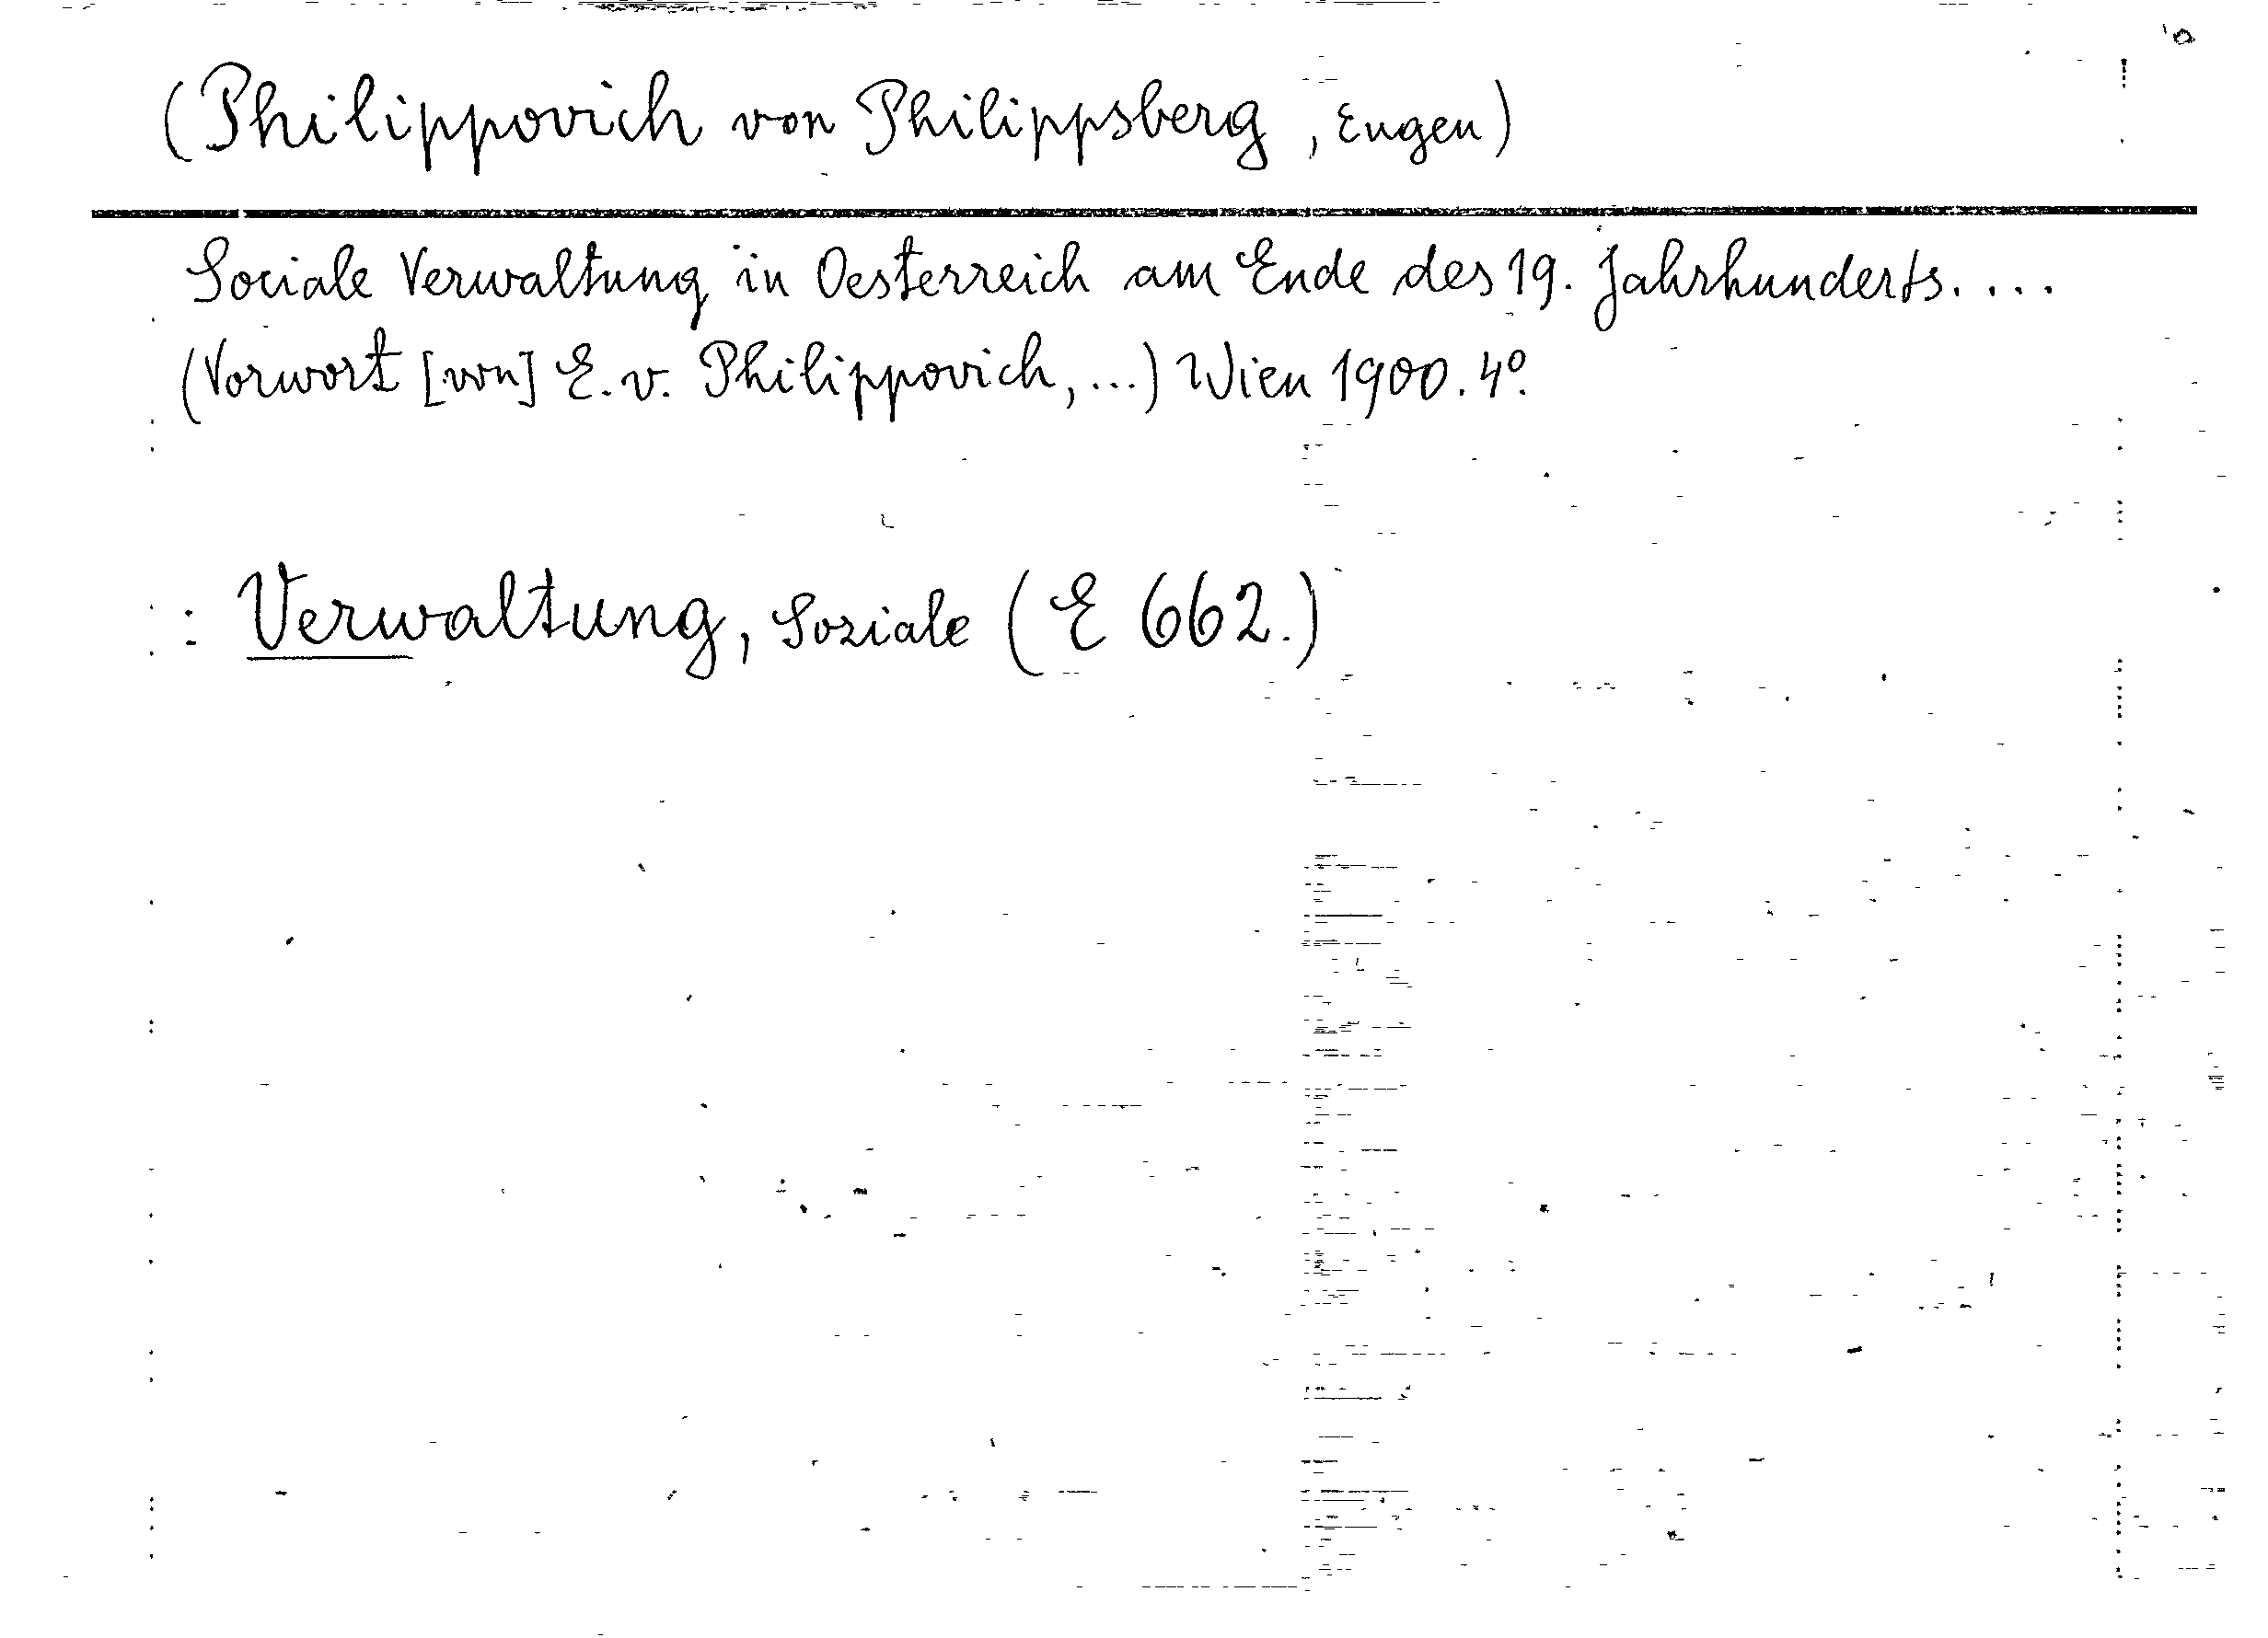 (Philippovich von Philippsberg, Eugen)
Sociale Verwaltung in Oesterreich am Ende des 19. Jahrhunderts. ...
(Vorwort [von] E. v. Philippovich, ...) Wien 1900. 4°.
: Verwaltung, Soziale (E 662.)